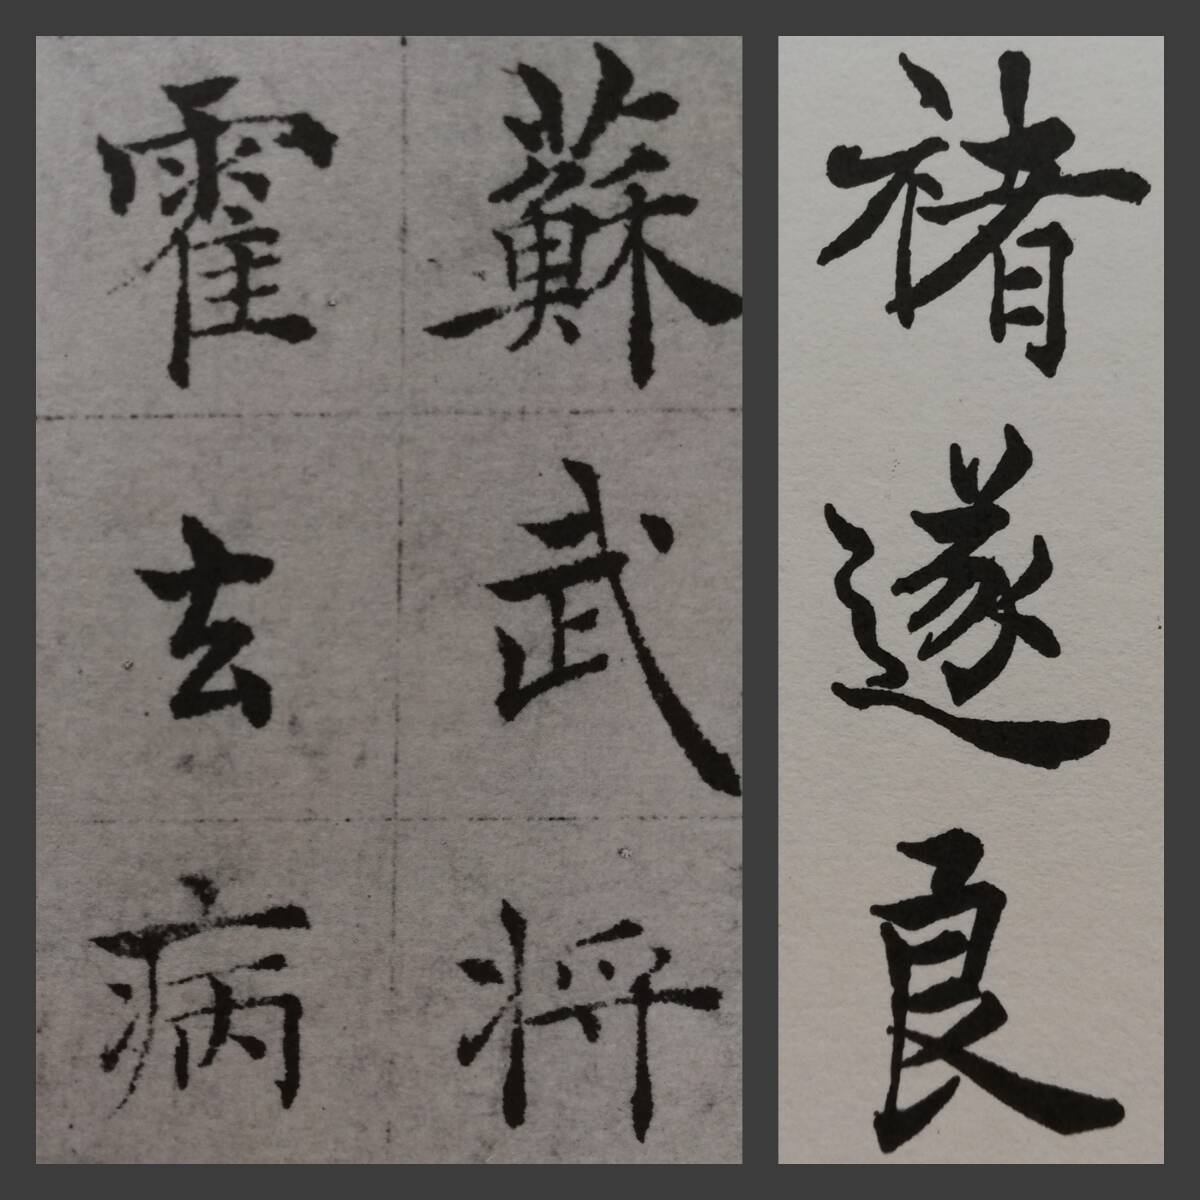 褚遂良
蘇武将
霍去病